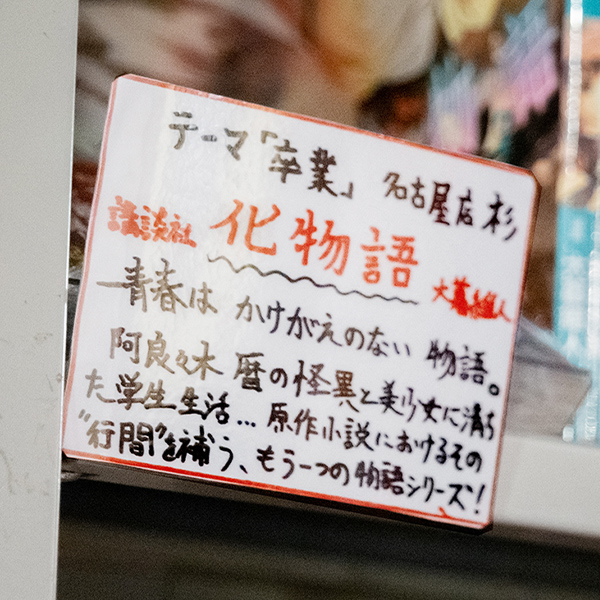 テーマ「卒業」 名古屋店 杉
講談社 化物語 大暮維人
―青春は かけがえのない 物語。
阿良々木 暦の怪異と美少女に満ち
た学生生活… 原作小説におけるその
"行間"を補う、もう一つの物語シリーズ!